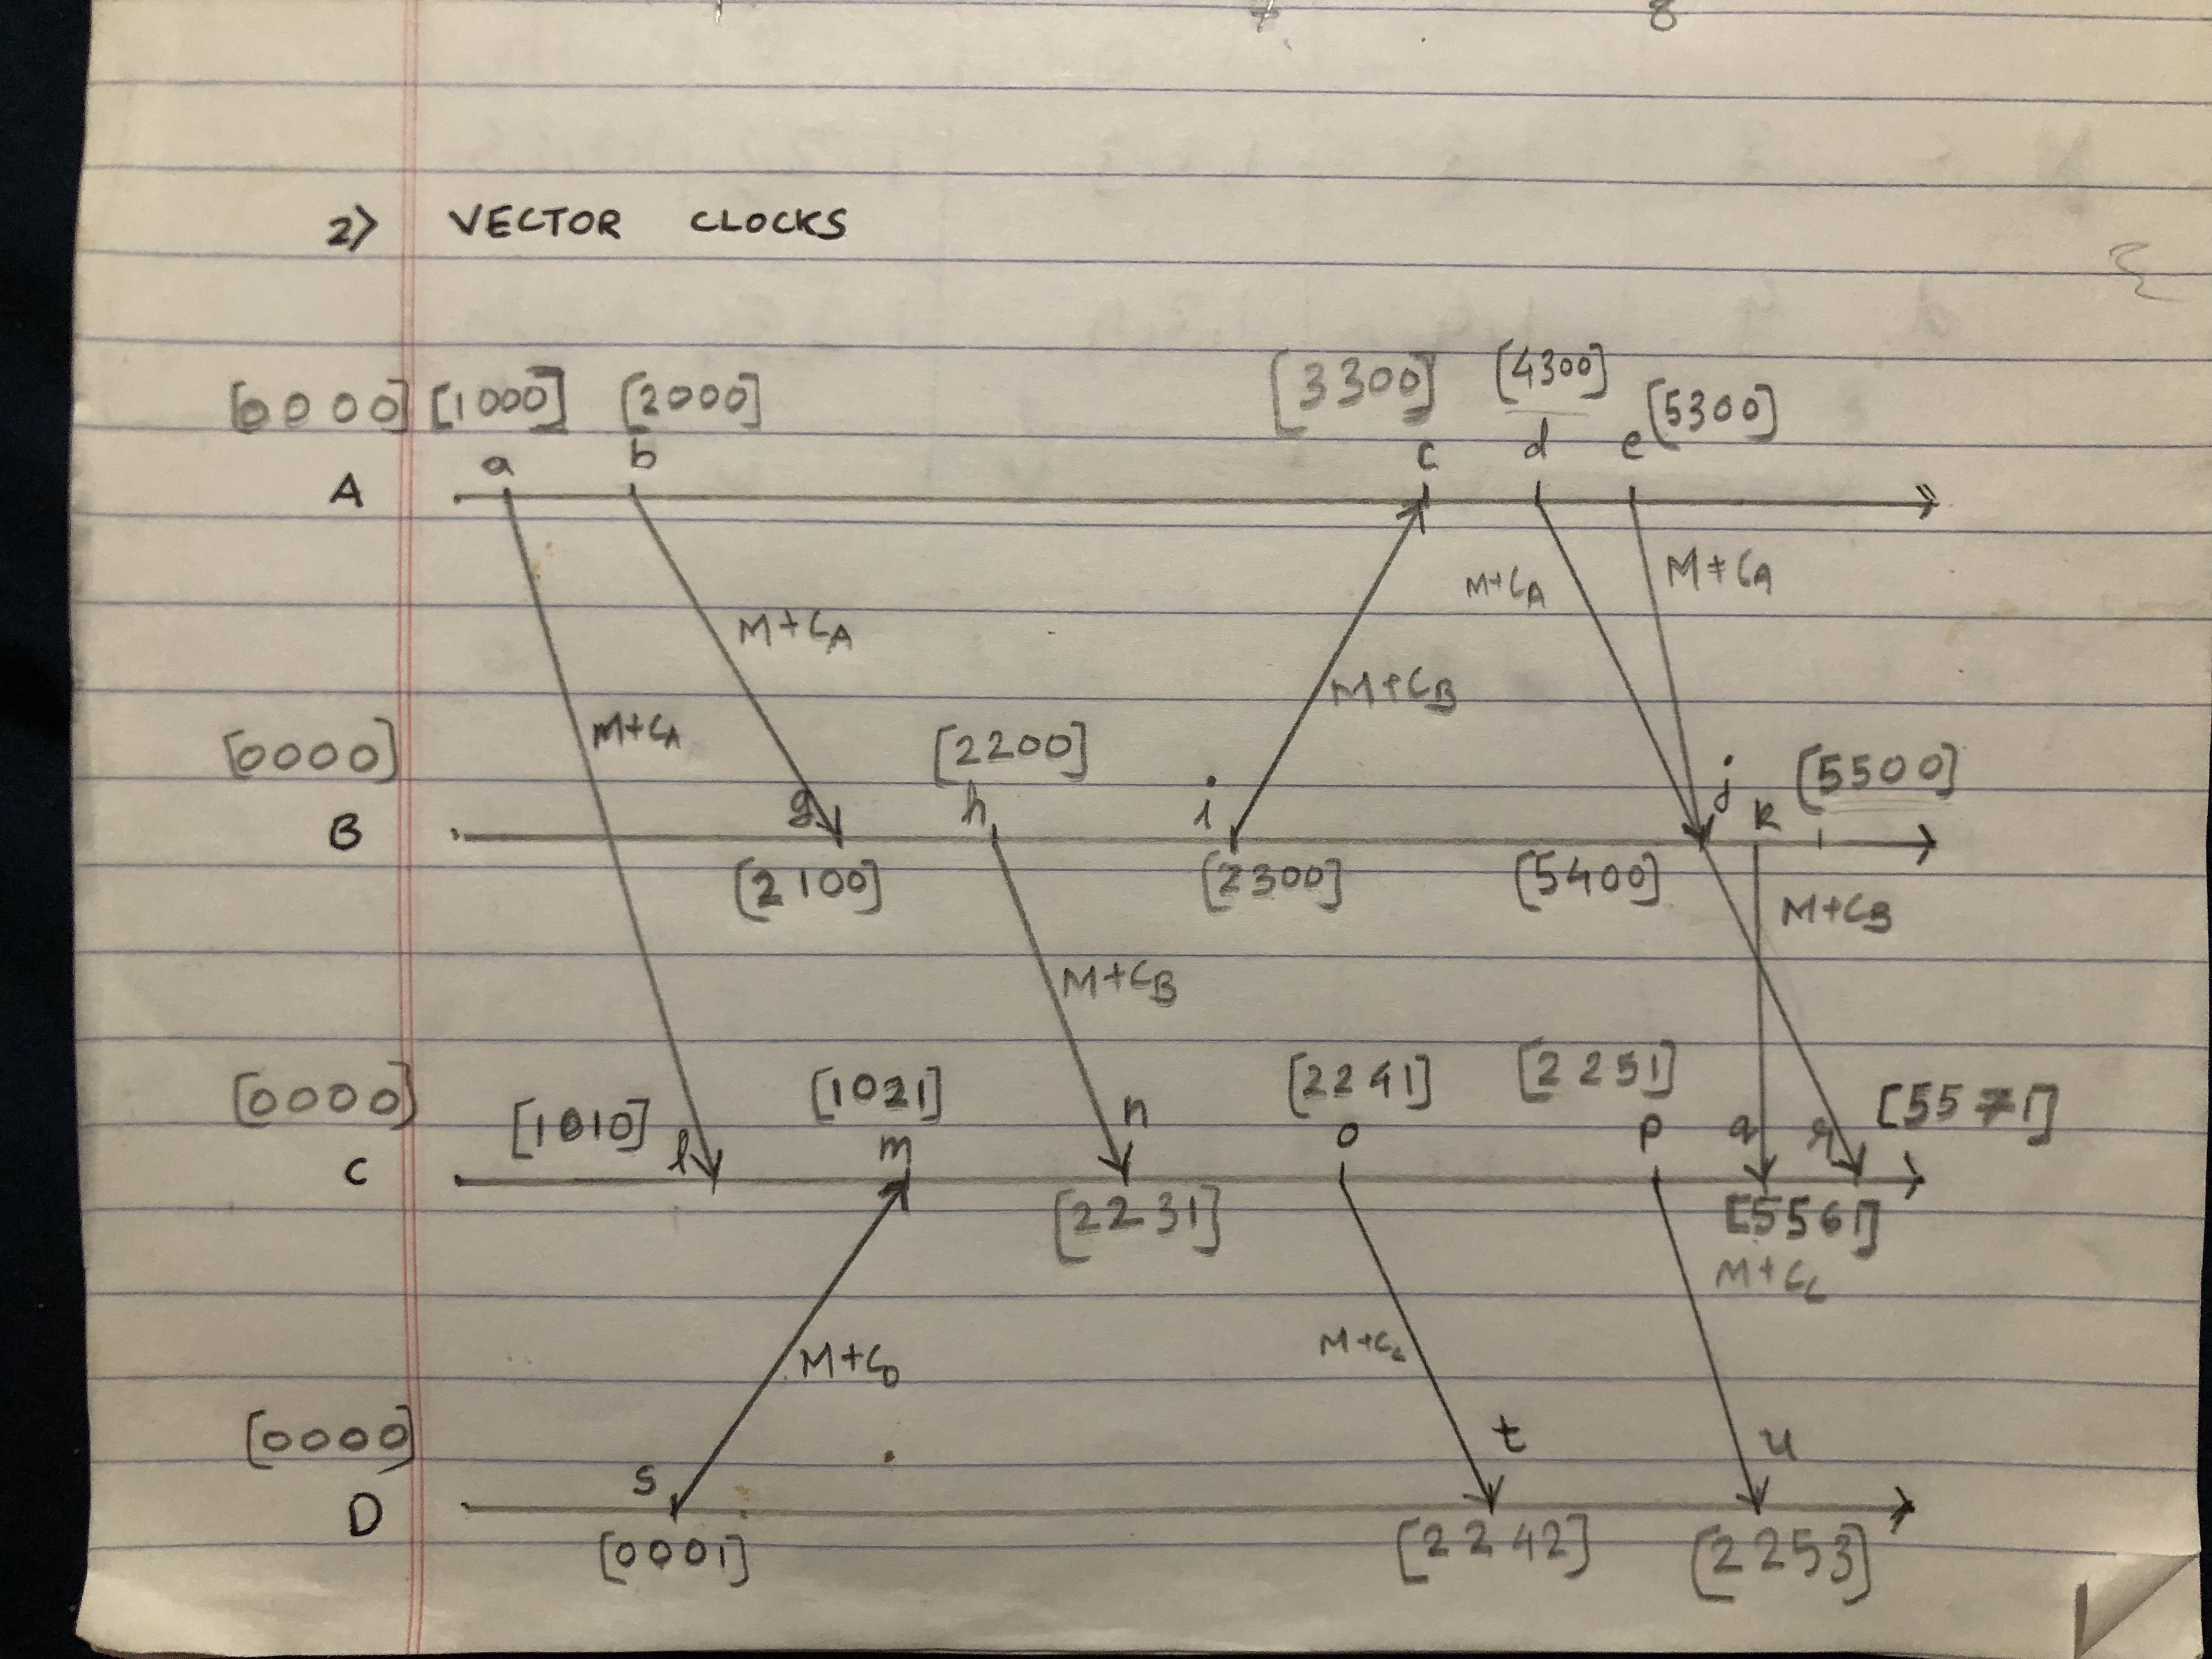 7 8
2) VECTOR CLOCKS
[0000] [1000] [2000] [3300] [4300] [5300]
a b c d e
A
M+CA M+CA
M+CA
M+CB
M+CA
[0000] [2200] [5500]
g h i j k
B
[2100] [2300] [5400]
M+CB
M+CB
[0000] [1010] [1021] [2241] [2251] [5571]
l m n o p q r
C
[2231] [5561]
M+CC
M+CD M+CC
[0000]
s t u
D
[0001] [2242] [2253]